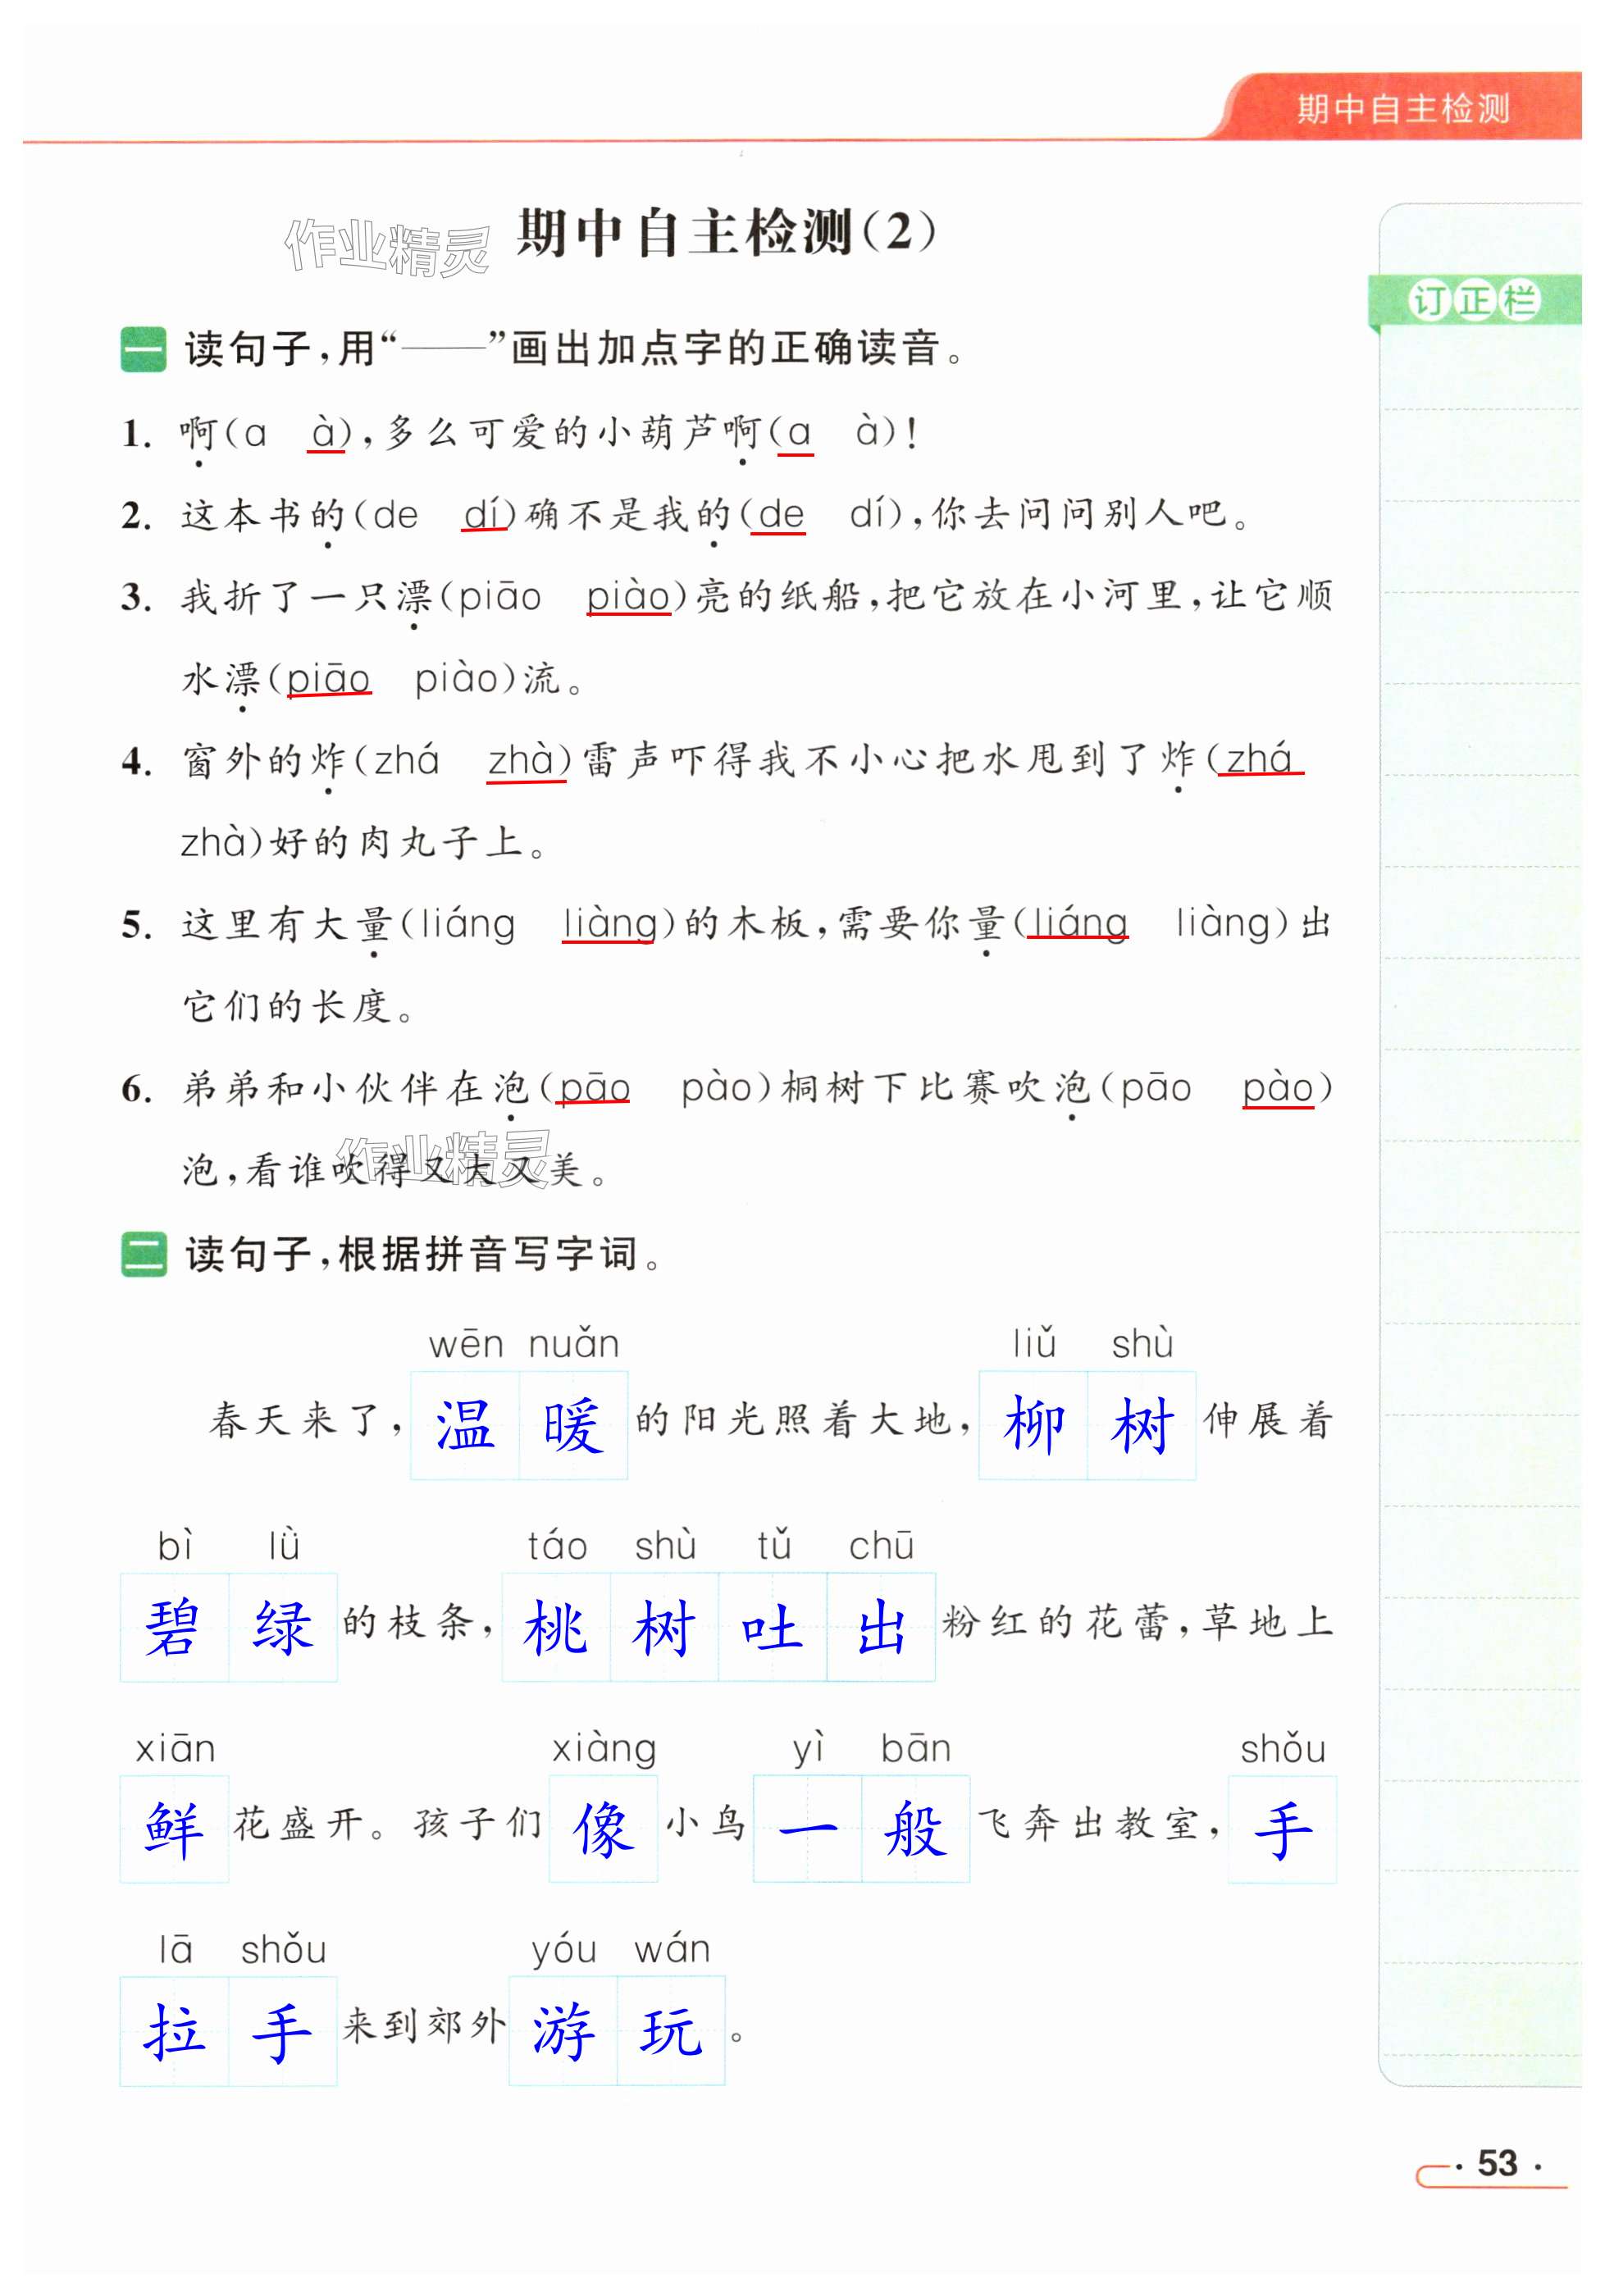 期中自主检测
作业精灵
期中自主检测(2)
订正栏
一 读句子,用“——”画出加点字的正确读音。
1. 啊(a à),多么可爱的小葫芦啊(a à)!
2. 这本书的(de dí)确不是我的(de dí),你去问问别人吧。
3. 我折了一只漂(piāo piào)亮的纸船,把它放在小河里,让它顺
水漂(piāo piào)流。
4. 窗外的炸(zhá zhà)雷声吓得我不小心把水甩到了炸(zhá
zhà)好的肉丸子上。
5. 这里有大量(liáng liàng)的木板,需要你量(liáng liàng)出
它们的长度。
6. 弟弟和小伙伴在泡(pāo pào)桐树下比赛吹泡(pāo pào)
泡,看谁吹得又大又美。
作业精灵
二 读句子,根据拼音写字词。
wēn nuǎn liǔ shù
春天来了,温暖的阳光照着大地,柳树伸展着
bì lǜ táo shù tǔ chū
碧绿的枝条,桃树吐出粉红的花蕾,草地上
xiān xiàng yì bān shǒu
鲜花盛开。孩子们像小鸟一般飞奔出教室,手
lā shǒu yóu wán
拉手来到郊外游玩。
· 53 ·